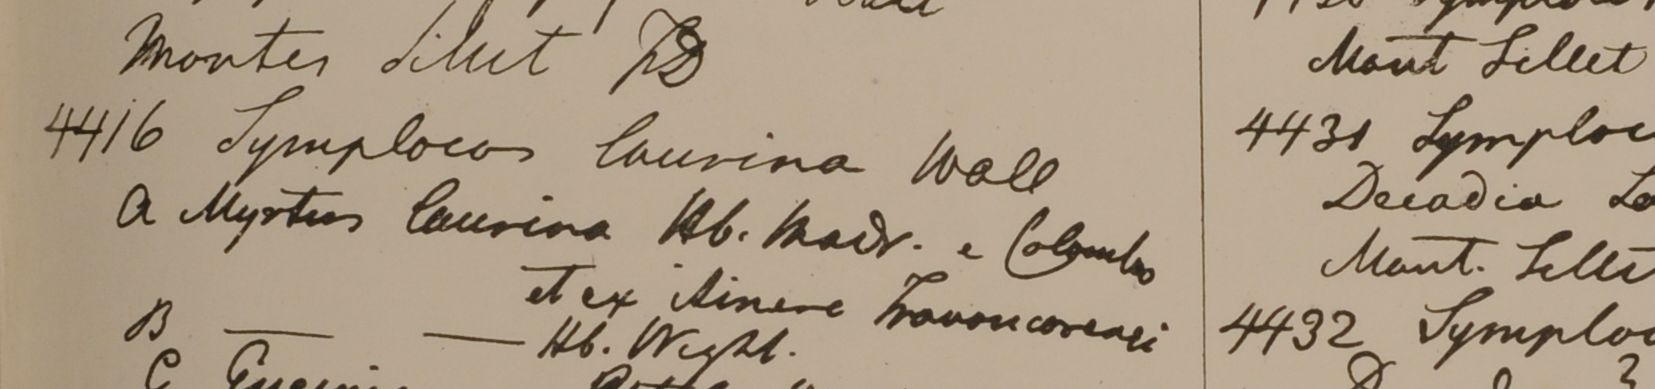 Montes Sillet FD
4416 Symplocos laurina Wall
A Myrtus laurina Hb. Madr. e Colombo
et ex itinere Travancorensi
B — — Hb. Wight.
C Eugenia
Mont Sillet
4431 Symploc
Decadia
Mont. Sillet
4432 Symploc